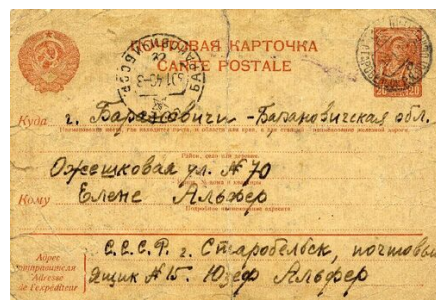 ПОЧТОВАЯ КАРТОЧКА
CARTE POSTALE
20 20
Куда г. Барановичи - Барановичская обл.
Ожешковая ул. № 70
Кому Елене Альфер
Адрес
отправителя
Adresse
de l'expéditeur
С.С.С.Р. г. Старобельск, почтовый
Ящик № 15. Юзеф Альфер